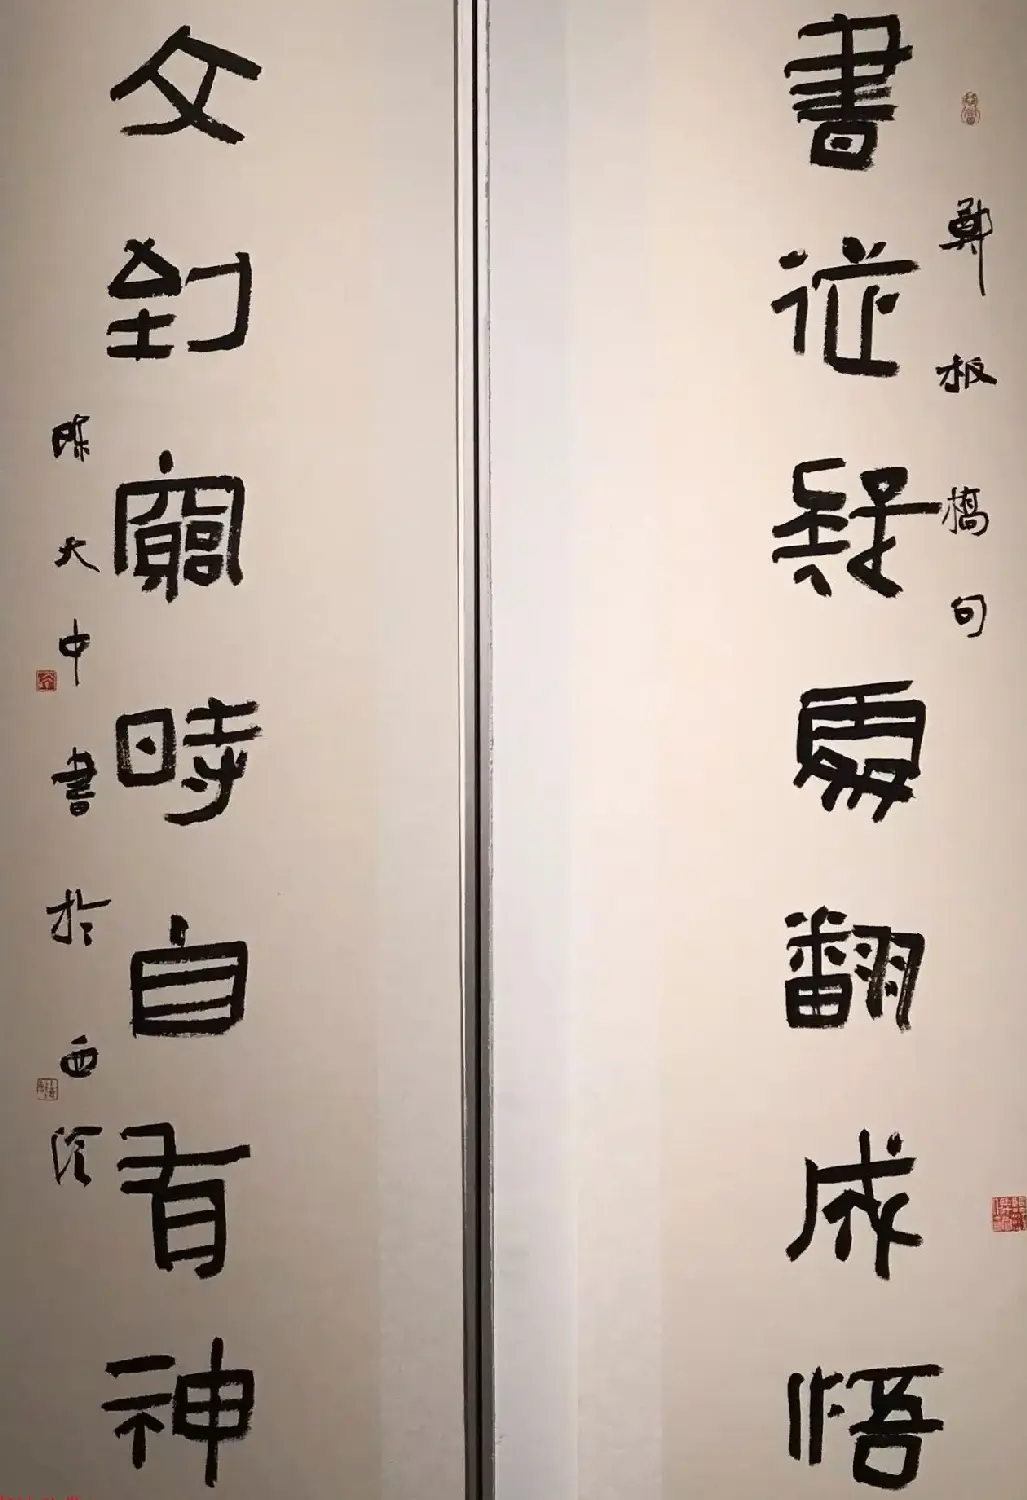 鄭板橋句
書從疑處翻成悟
文到窮時自有神
陳大中書於西泠